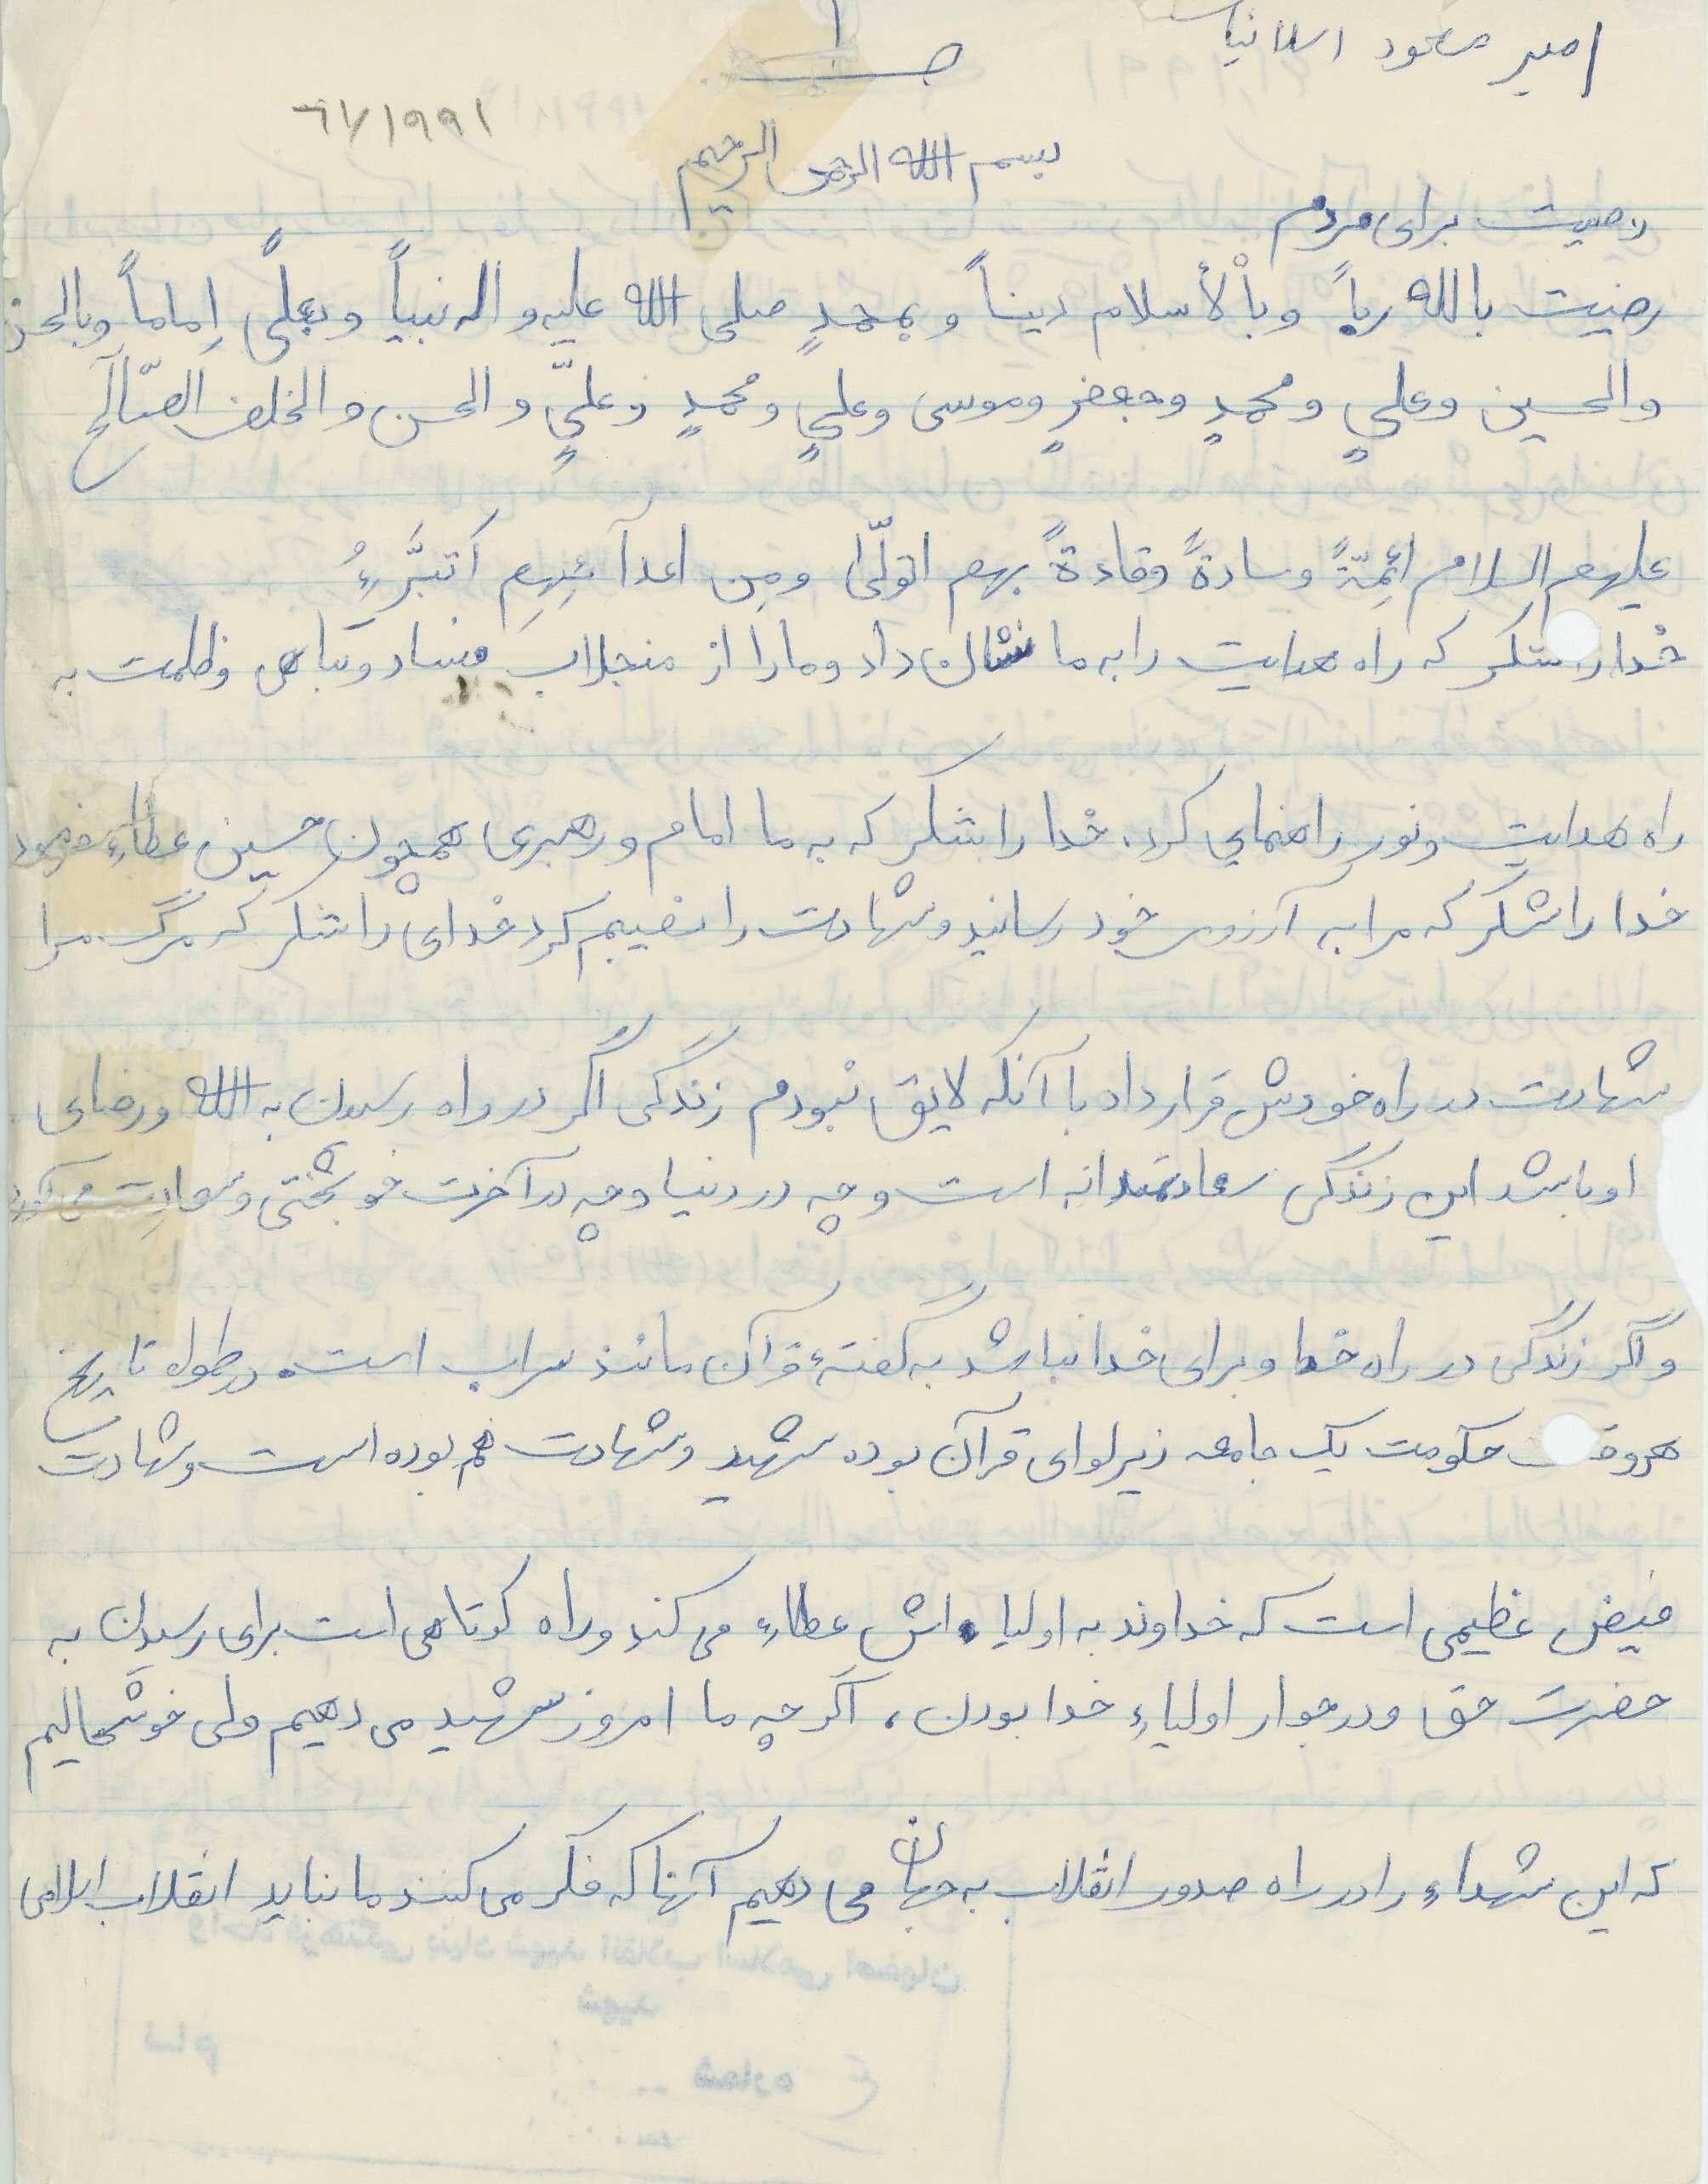 امیر مسعود اسلانیان
ص ۱
۶۱/۱۹۹۱
بسم الله الرحمن الرحیم
وصیت برای مردم
رضیت بالله رباً وبالأسلام دیناً و بمحمدٍ صلی الله علیه و اله نبیاً و بعلیٍ اِماماً وبالحسن
والحسین وعلیٍ ومحمدٍ وجعفرٍ وموسی وعلیٍ ومحمدٍ وعلیٍّ والحسن والخلف الصّالح
علیهم السلام ائِمّةً وسادةً وقادةً بهم اتولّیٰ ومِن اعدآئِهِم اَتَبَرَّءُ
خدا را شکر که راه هدایت را به ما نشان داد و ما را از منجلاب فساد و تباهی وظلمت به
راه هدایت ونور راهنمایی کرد. خدا را شکر که به ما امام ورهبری همچون حسین عطاء فرمود
خدا را شکر که مرا به آرزوی خود رسانید و شهادت را نصیبم کرد خدای را شکر که مرگ مرا
شهادت در راه خودش قرار داد با آنکه لایق نبودم زندگی اگر در راه رسیدن به الله ورضای
او باشد این زندگی سعادتمندانه است و چه در دنیا و چه در آخرت خوشبختی و سعادت می آورد
و اگر زندگی در راه خدا و برای خدا نباشد به گفتهٔ قرآن مانند سراب است. در طول تاریخ
هر وقت حکومت یک جامعه زیر لوای قرآن بوده شهید و شهادت هم بوده است و شهادت
فیض عظیمی است که خداوند به اولیاء اش عطاء می کند و راه کوتاهی است برای رسیدن به
حضرت حق ودر جوار اولیاءِ خدا بودن، اگر چه ما امروز شهید می دهیم ولی خوشحالیم
که این شهداء را در راه صدور انقلاب به جهان می دهیم آنها که فکر می کنند ما نباید انقلاب اسلامی